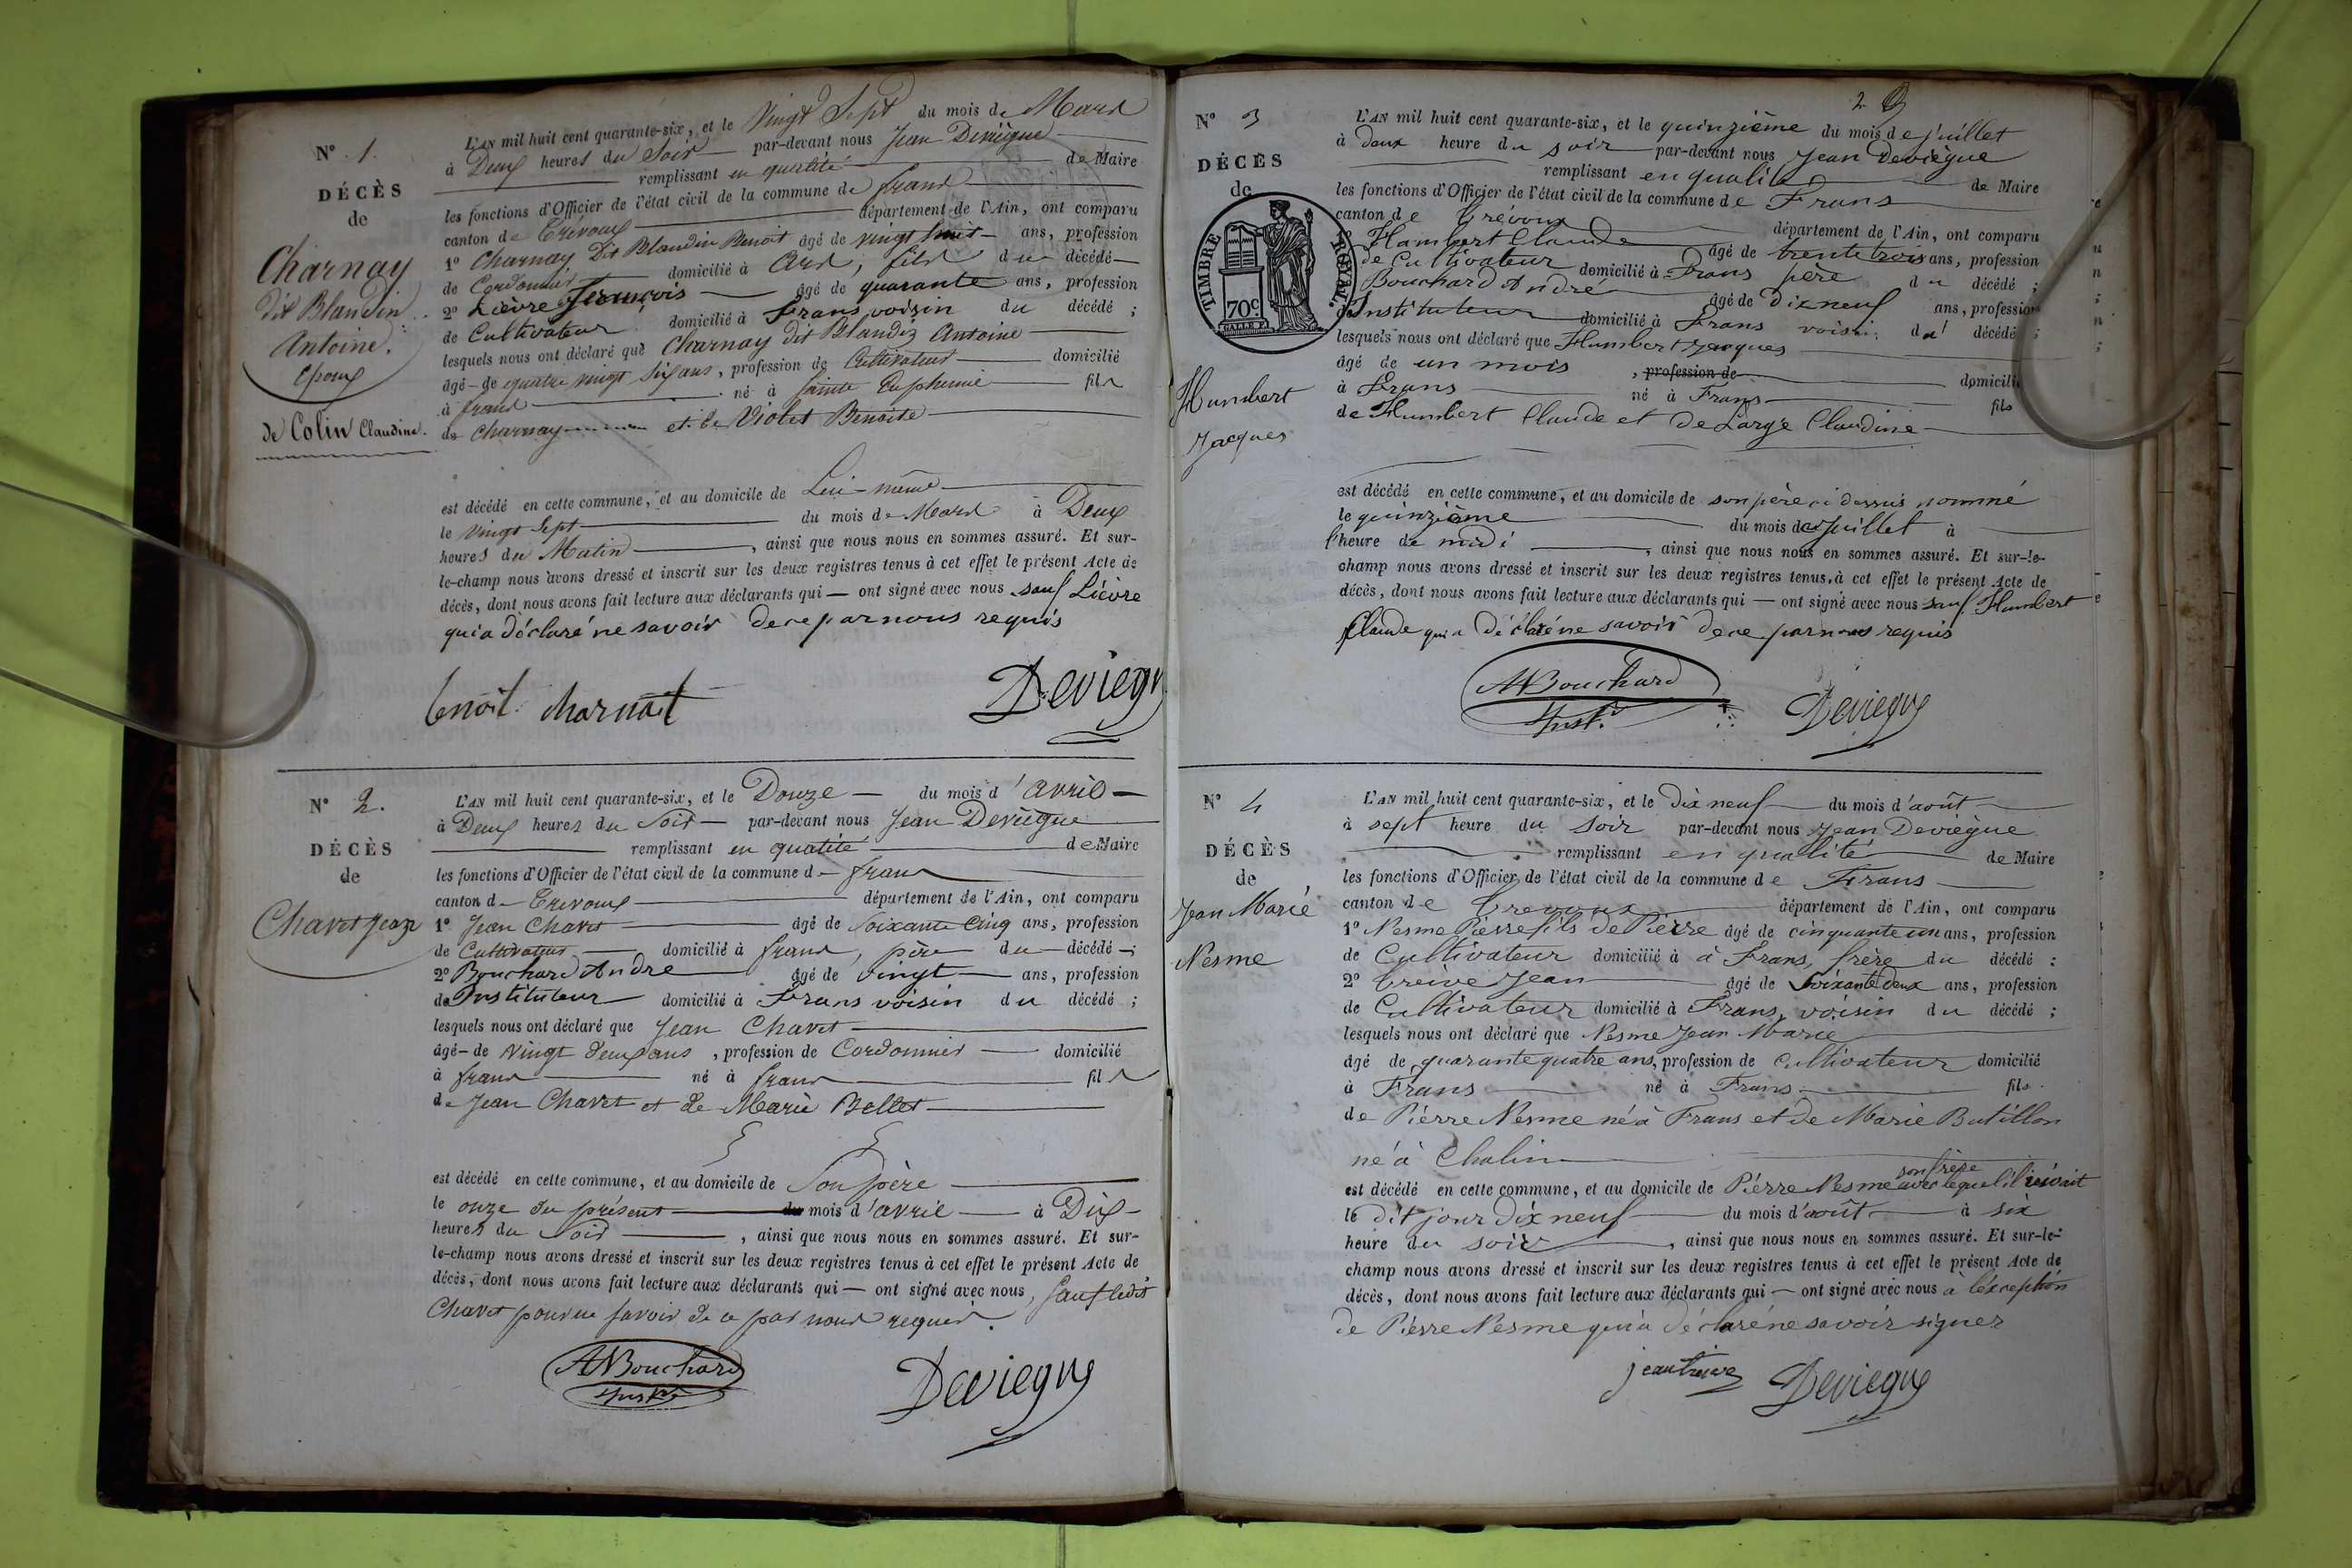 N° 1.
DÉCÈS
de
Charnay
dit Blandin
Antoine.
époux
de Colin Claudine.
L'AN mil huit cent quarante-six, et le Vingt Sept du mois de Mars
à Deux heures du Soir par-devant nous Jean Deviègue
remplissant en qualité de Maire
les fonctions d'Officier de l'état civil de la commune de frans
canton de Trévoux département de l'Ain, ont comparu
1° Charnay Dit Blandin Benoit âgé de vingt huit ans, profession
de Cordonnier domicilié à Ars, fils du décédé
2° Lièvre François âgé de quarante ans, profession
de Cultivateur domicilié à Frans voisin du décédé ;
lesquels nous ont déclaré que Charnay dit Blandin Antoine
âgé de quatre vingt six ans, profession de Cultivateur domicilié
à frans né à Sainte Euphemie fils
de Charnay et de Violet Benoite
est décédé en cette commune, et au domicile de Lui-même
le Vingt Sept du mois de Mars à Deux
heures du Matin, ainsi que nous nous en sommes assuré. Et sur-
le-champ nous avons dressé et inscrit sur les deux registres tenus à cet effet le présent Acte de
décès, dont nous avons fait lecture aux déclarants qui — ont signé avec nous sauf Lièvre
qui a déclaré ne savoir de ce par nous requis
benoit charnait
Deviegu
N° 2.
DÉCÈS
de
Chavet Jean
L'AN mil huit cent quarante-six, et le Douze du mois d'avril
à Deux heures du Soir par-devant nous Jean Deviègue
remplissant en qualité de Maire
les fonctions d'Officier de l'état civil de la commune de frans
canton de Trevoux département de l'Ain, ont comparu
1° Jean Chavet âgé de Soixante Cinq ans, profession
de Cultivateur domicilié à frans, père du décédé ;
2° Bouchard André âgé de vingt ans, profession
de Instituteur domicilié à Frans voisin du décédé ;
lesquels nous ont déclaré que Jean Chavet
âgé de Vingt deux ans, profession de Cordonnier domicilié
à frans né à frans fils
de Jean Chavet et de Marie Bellet
est décédé en cette commune, et au domicile de Son père
le onze du présent du mois d'avril à Dix
heures du Soir, ainsi que nous nous en sommes assuré. Et sur-
le-champ nous avons dressé et inscrit sur les deux registres tenus à cet effet le présent Acte de
décès, dont nous avons fait lecture aux déclarants qui — ont signé avec nous, sauf ledit
Chavet pour ne savoir de ce par nous requis.
ABouchard
Instr
Deviegue
2
N° 3
DÉCÈS
de
TIMBRE ROYAL.
70c
Humbert
Jacques
L'AN mil huit cent quarante-six, et le quinzième du mois de juillet
à deux heure du soir par-devant nous Jean Deviègue
remplissant en qualité de Maire
les fonctions d'Officier de l'état civil de la commune de Frans
canton de Trévoux département de l'Ain, ont comparu
Humbert Claude âgé de trente trois ans, profession
de Cultivateur domicilié à Frans père du décédé ;
Bouchard André âgé de dix neuf ans, profession
d'Instituteur domicilié à Frans voisin du décédé ;
lesquels nous ont déclaré que Humbert Jacques
âgé de un mois, profession de domicilié
à Frans né à Frans fils
de Humbert Claude et Delarge Claudine
est décédé en cette commune, et au domicile de son père ci dessus nommé
le quinzième du mois de juillet à
l'heure de midi, ainsi que nous nous en sommes assuré. Et sur-le-
champ nous avons dressé et inscrit sur les deux registres tenus à cet effet le présent Acte de
décès, dont nous avons fait lecture aux déclarants qui — ont signé avec nous sauf Humbert
Claude qui a déclaré ne savoir de ce par nous requis
ABouchard
Instr
Deviegue
N° 4
DÉCÈS
de
Jean Marie
Nesme
L'AN mil huit cent quarante-six, et le dix neuf du mois d'août
à sept heure du soir par-devant nous Jean Deviègue
remplissant en qualité de Maire
les fonctions d'Officier de l'état civil de la commune de Frans
canton de Trevoux département de l'Ain, ont comparu
1° Nesme Pierre fils de Pierre âgé de cinquante un ans, profession
de Cultivateur domicilié à à Frans, frère du décédé ;
2° Treive Jean âgé de soixante deux ans, profession
de Cultivateur domicilié à Frans, voisin du décédé ;
lesquels nous ont déclaré que Nesme Jean Marie
âgé de quarante quatre ans, profession de cultivateur domicilié
à Frans né à Frans fils
de Pierre Nesme né à Frans et de Marie Butillon
né à Chalin
est décédé en cette commune, et au domicile de Pierre Nesme son frère avec lequel il vivait
le dit jour dix neuf du mois d'août à six
heure du soir, ainsi que nous nous en sommes assuré. Et sur-le-
champ nous avons dressé et inscrit sur les deux registres tenus à cet effet le présent Acte de
décès, dont nous avons fait lecture aux déclarants qui — ont signé avec nous à l'exception
de Pierre Nesme qui a déclaré ne savoir signer
jean treive
Deviegue